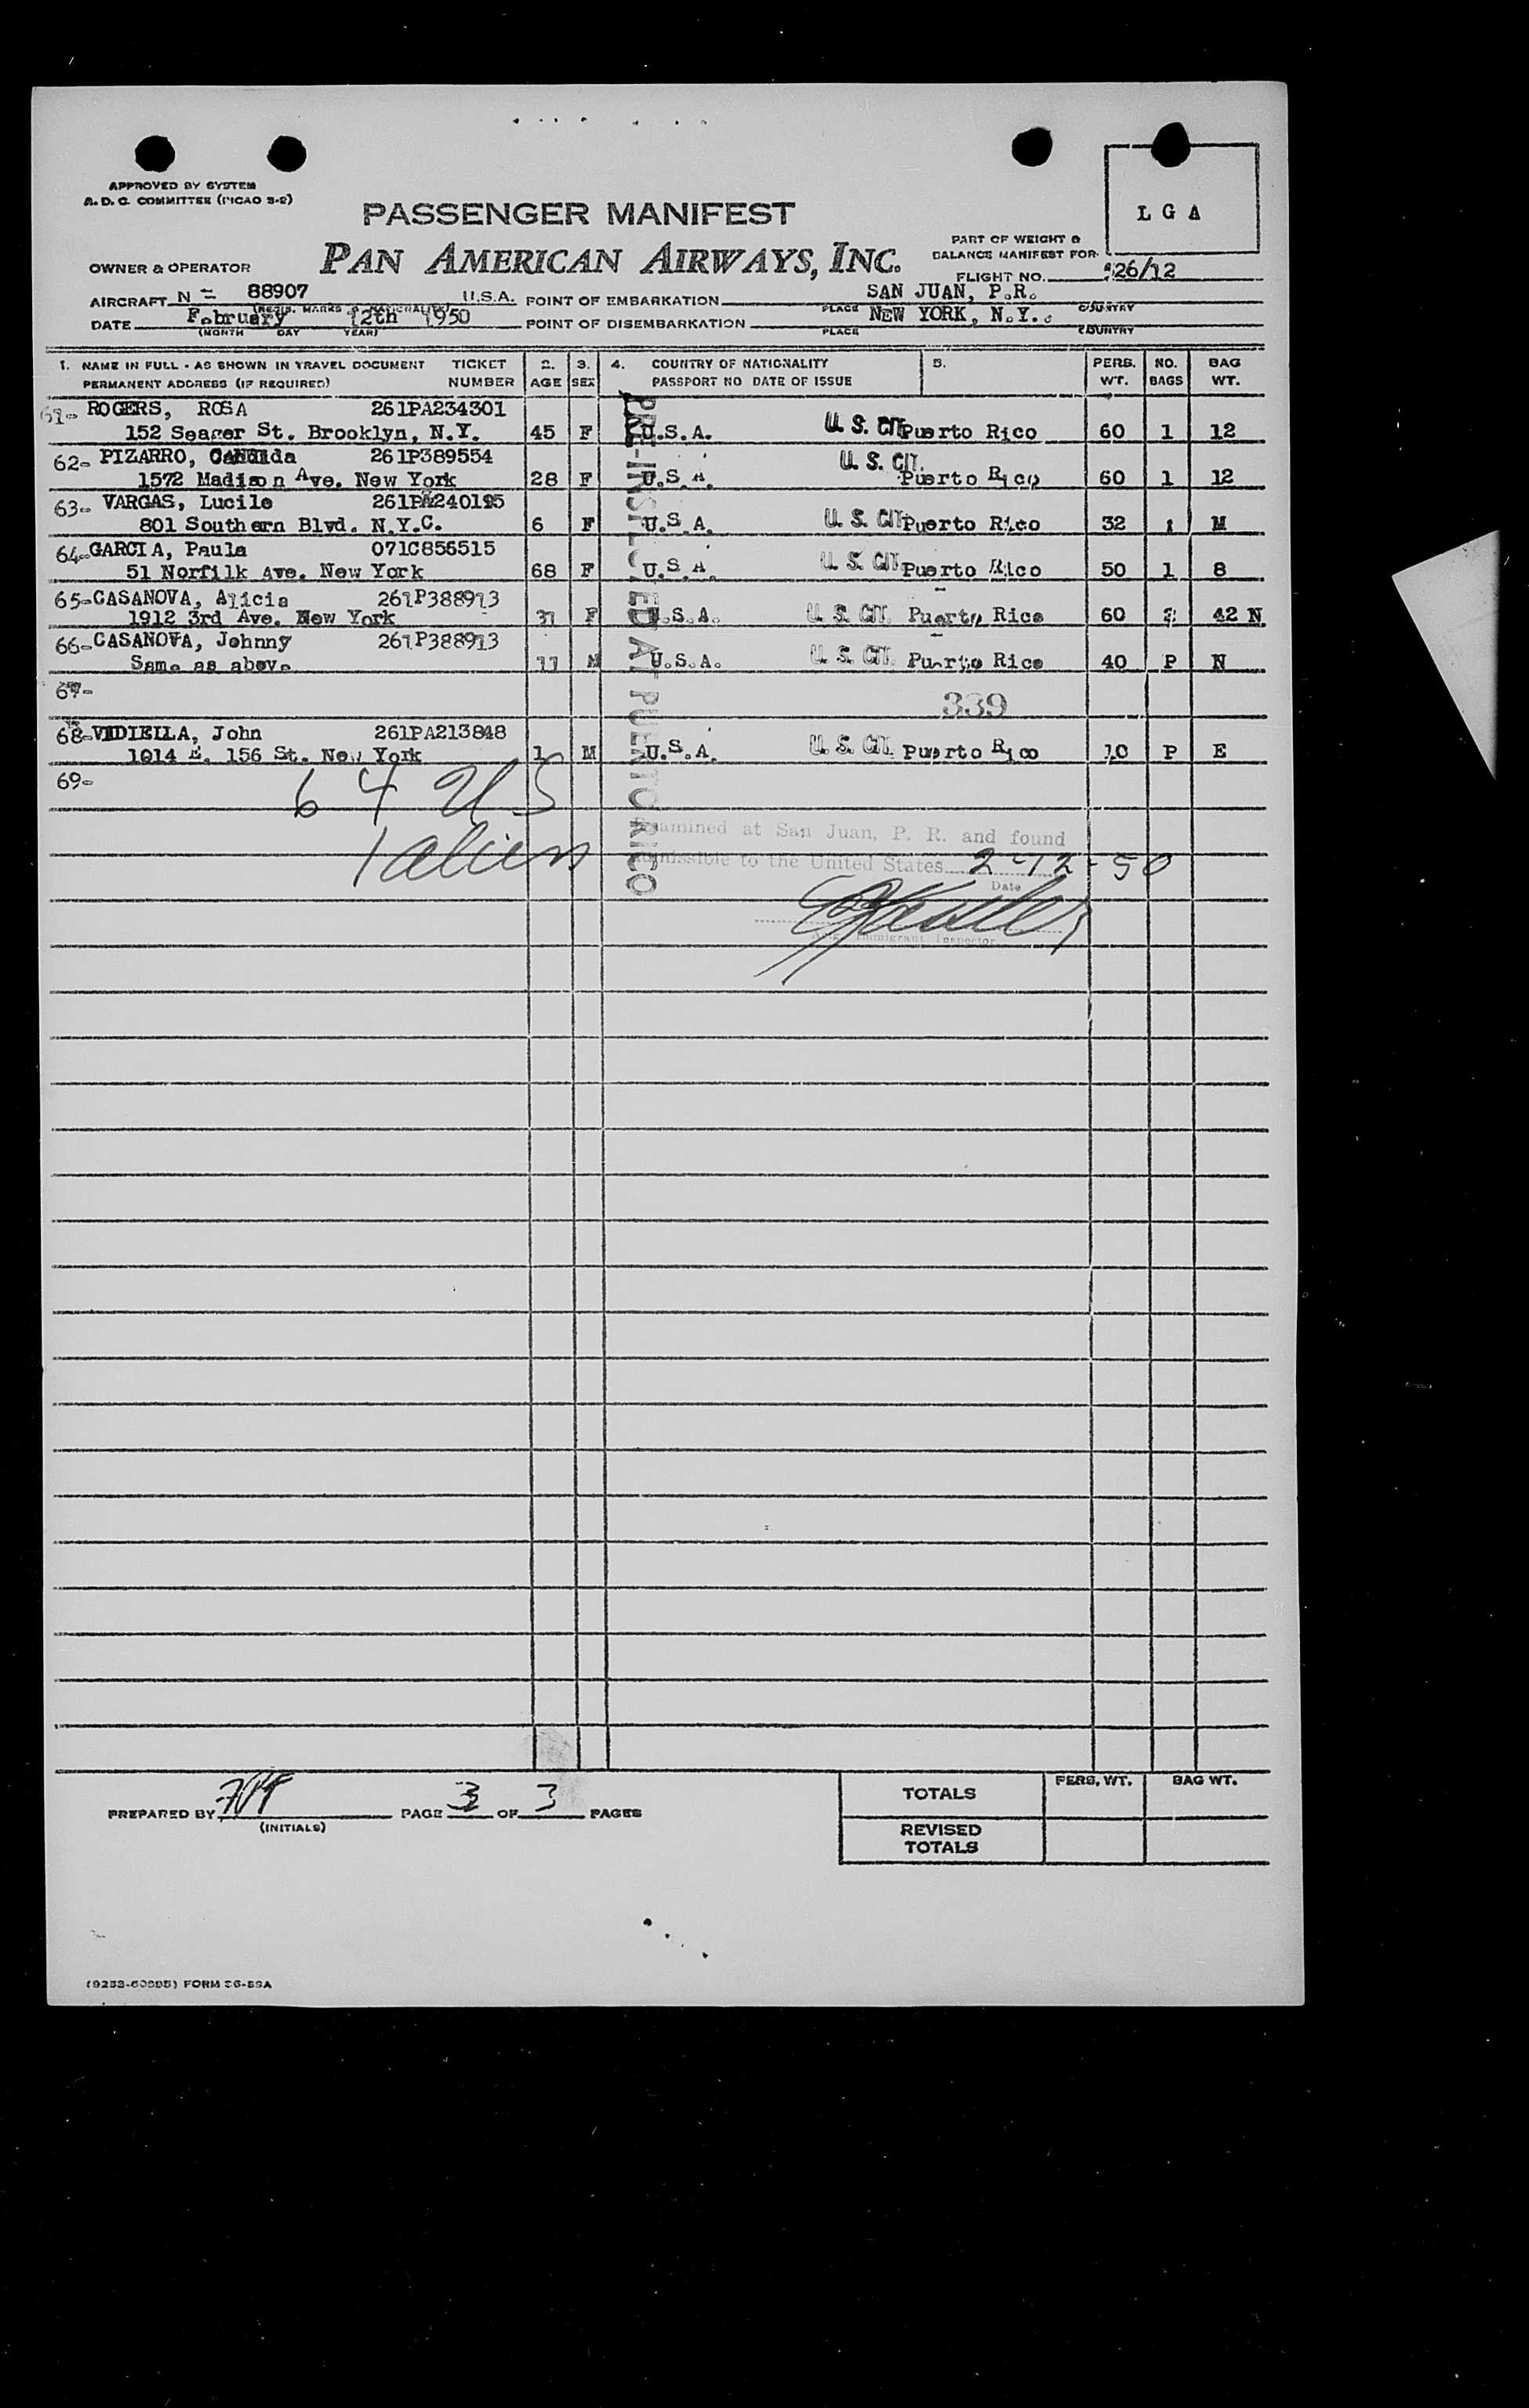 APPROVED BY SYSTEM
A. D. C. COMMITTEE (PICAO 3-2)
L G A
PASSENGER MANIFEST
PAN AMERICAN AIRWAYS, INC.
PART OF WEIGHT &
BALANCE MANIFEST FOR
OWNER & OPERATOR
FLIGHT NO. 26/12
AIRCRAFT N - 88907 U.S.A. POINT OF EMBARKATION SAN JUAN, P.R.
PLACE COUNTRY
DATE February 12th 1950 POINT OF DISEMBARKATION NEW YORK, N.Y.
(MONTH DAY YEAR) PLACE COUNTRY
1. NAME IN FULL - AS SHOWN IN TRAVEL DOCUMENT TICKET 2. 3. 4. COUNTRY OF NATIONALITY 5. PERS. NO. BAG
PERMANENT ADDRESS (IF REQUIRED) NUMBER AGE SEX PASSPORT NO DATE OF ISSUE WT. BAGS WT.
61- ROGERS, ROSA 261PA234301
152 Seager St. Brooklyn, N.Y. 45 F U.S.A. U. S. CIT. Puerto Rico 60 1 12
62- PIZARRO, Candida 261P389554
1572 Madison Ave. New York 28 F U.S.A. U. S. CIT. Puerto Rico 60 1 12
63- VARGAS, Lucile 261PA240195
801 Southern Blvd. N.Y.C. 6 F U.S.A. U. S. CIT. Puerto Rico 32 1 M
64- GARCIA, Paula 071C856515
51 Norfilk Ave. New York 68 F U.S.A. U. S. CIT. Puerto Rico 50 1 8
65- CASANOVA, Alicia 261P388913
1912 3rd Ave. New York 31 F U.S.A. U. S. CIT. Puerto Rico 60 2 42 N
66- CASANOVA, Johnny 261P388913
Same as above 11 M U.S.A. U. S. CIT. Puerto Rico 40 P N
67-
339
68- VIDIELLA, John 261PA213848
1014 E. 156 St. New York 1 M U.S.A. U. S. CIT. Puerto Rico 10 P E
69-
PRE-INSPECTED AT PUERTO RICO
64 US
1 alien
Examined at San Juan, P. R. and found
admissible to the United States 2-12-50
Date
Immigrant Inspector
PERS. WT. BAG WT.
TOTALS
PREPARED BY PAGE 3 OF 3 PAGES
(INITIALS)
REVISED
TOTALS
FORM